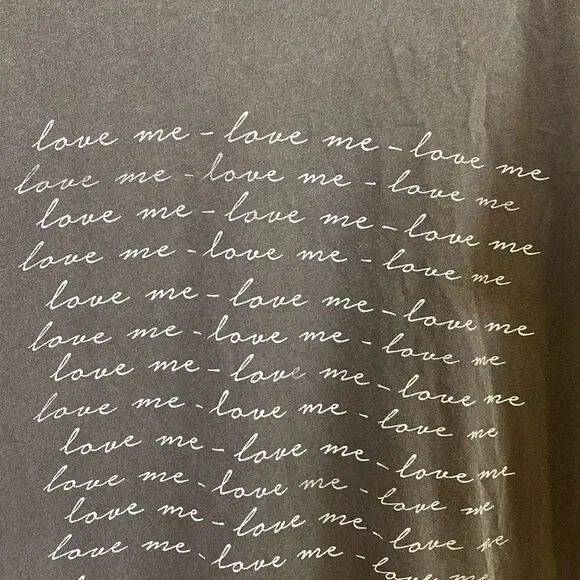 love me - love me - love me
love me - love me - love me
love me - love me - love me
love me - love me - love me
love me - love me - love me
love me - love me - love me
love me - love me - love me
love me - love me - love me
love me - love me - love me
love me - love me - love me
love me - love me - love me
love me - love me - love me